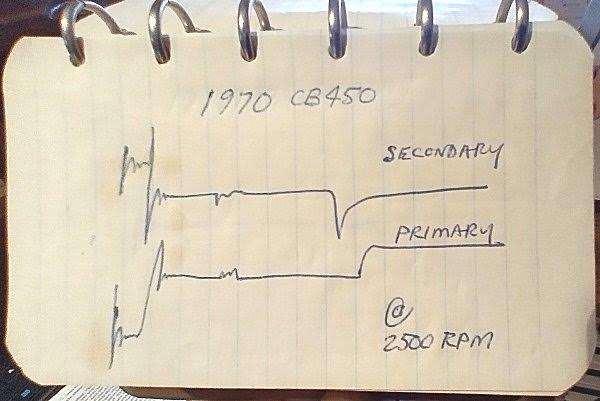 1970 CB450
SECONDARY
PRIMARY
@
2500 RPM